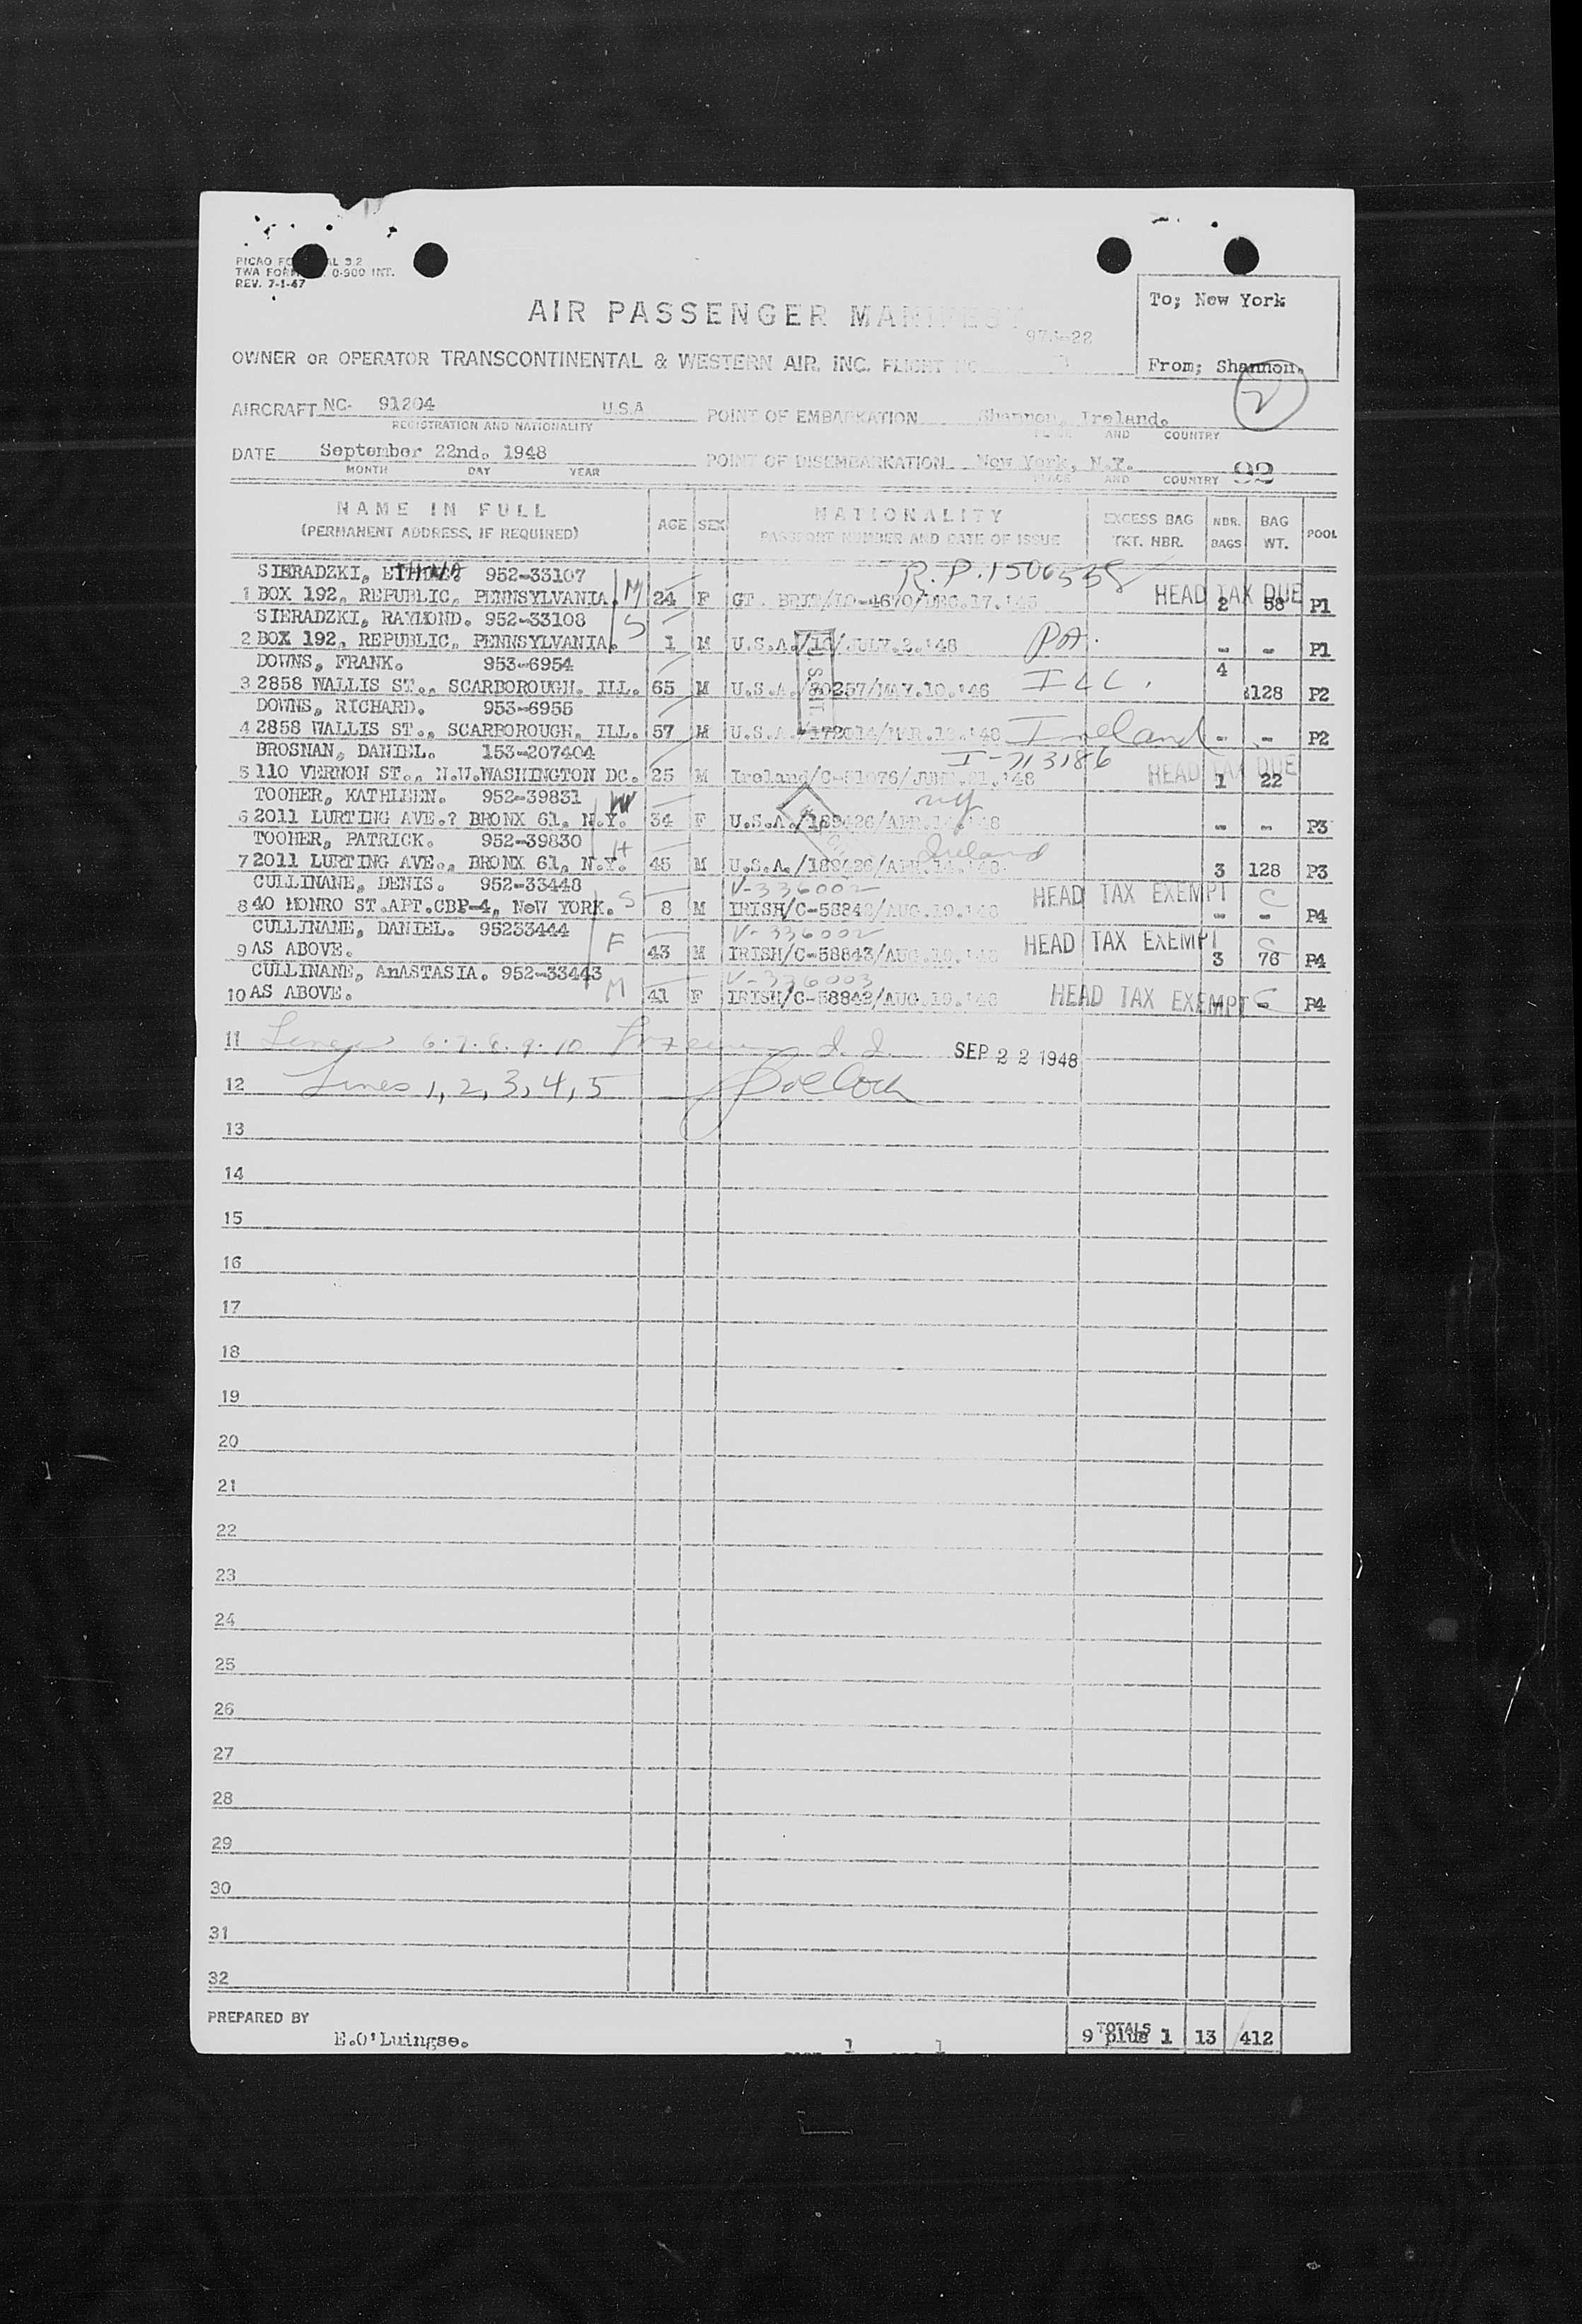 TWA FORM 0-900 INT.
REV. 7-1-47
To; New York
From; Shannon.
2
AIR PASSENGER MANIFEST
OWNER OR OPERATOR TRANSCONTINENTAL & WESTERN AIR, INC. FLIGHT NO
AIRCRAFT NC- 91204 U.S.A POINT OF EMBARKATION Shannon, Ireland.
REGISTRATION AND NATIONALITY PLACE AND COUNTRY
DATE September 22nd. 1948 POINT OF DISEMBARKATION New York, N.Y. 92
MONTH DAY YEAR PLACE AND COUNTRY
NAME IN FULL AGE SEX NATIONALITY EXCESS BAG NBR. BAG POOL
(PERMANENT ADDRESS, IF REQUIRED) PASSPORT NUMBER AND DATE OF ISSUE TKT. NBR. BAGS WT.
SIERADZKI, 952-33107 R.P. 1506538 HEAD TAX DUE
1 BOX 192, REPUBLIC, PENNSYLVANIA. M 24 F GT. BRIT/LO-4670/DEC.17. 2 58 P1
SIERADZKI, RAYMOND. 952-33108 S
2 BOX 192, REPUBLIC, PENNSYLVANIA. 1 M U.S.A. /JULY.2.'48 PA. - - P1
DOWNS, FRANK. 953-6954 4
3 2858 WALLIS ST., SCARBOROUGH. ILL. 65 M U.S.A./80257/MAY.10.'46 ILL. 128 P2
DOWNS, RICHARD. 953-6955
4 2858 WALLIS ST., SCARBOROUGH, ILL. 57 M U.S.A. '48 Ireland - - P2
BROSNAN, DANIEL. 153-207404 I-713186 HEAD TAX DUE
5 110 VERNON ST., N.W.WASHINGTON DC. 25 M Ireland/C-51076/JUNE. '48 1 22
TOOHER, KATHLEEN. 952-39831 W NY
6 2011 LURTING AVE.? BRONX 61. N.Y. 34 F U.S.A./189426/APR.14.'48 - - P3
TOOHER, PATRICK. 952-39830 H Ireland
7 2011 LURTING AVE., BRONX 61, N.Y. 45 M U.S.A./189426/APR.14.'48. 3 128 P3
CULLINANE, DENIS. 952-33448 S V-336002 HEAD TAX EXEMPT C
8 40 MONRO ST.APT.CBF-4, NeW YORK. 8 M IRISH/C-58842/AUG.19.'48 - - P4
CULLINANE, DANIEL. 95233444 F V-336002 HEAD TAX EXEMPT C
9 AS ABOVE. 43 M IRISH/C-58843/AUG.19.'48 3 76 P4
CULLINANE, AnASTASIA. 952-33443 M V-336003
10 AS ABOVE. 41 F IRISH/C-58842/AUG.19.'48 HEAD TAX EXEMPT - C P4
11 Lines 6.7.8.9.10 SEP 22 1948
12 Lines 1, 2, 3, 4, 5
13
14
15
16
17
18
19
20
21
22
23
24
25
26
27
28
29
30
31
32
PREPARED BY TOTALS
E.O'Luingse. 1 1 9 plus 1 13 412